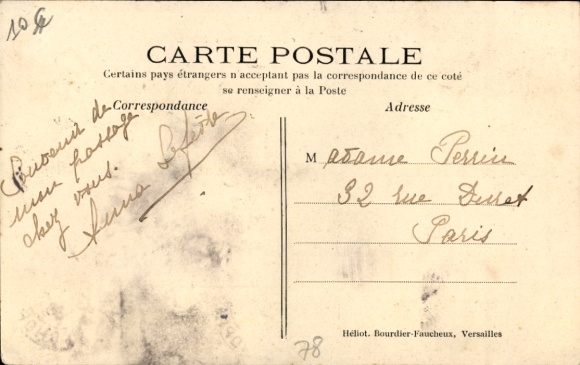 10€
CARTE POSTALE
Certains pays étrangers n'acceptant pas la correspondance de ce coté
se renseigner à la Poste
Correspondance
Adresse
Souvenir de
mon passage
chez vous.
Anna Lefèvre
Madame Perrin
32 rue Duret
Paris
Héliot. Bourdier-Faucheux, Versailles
78